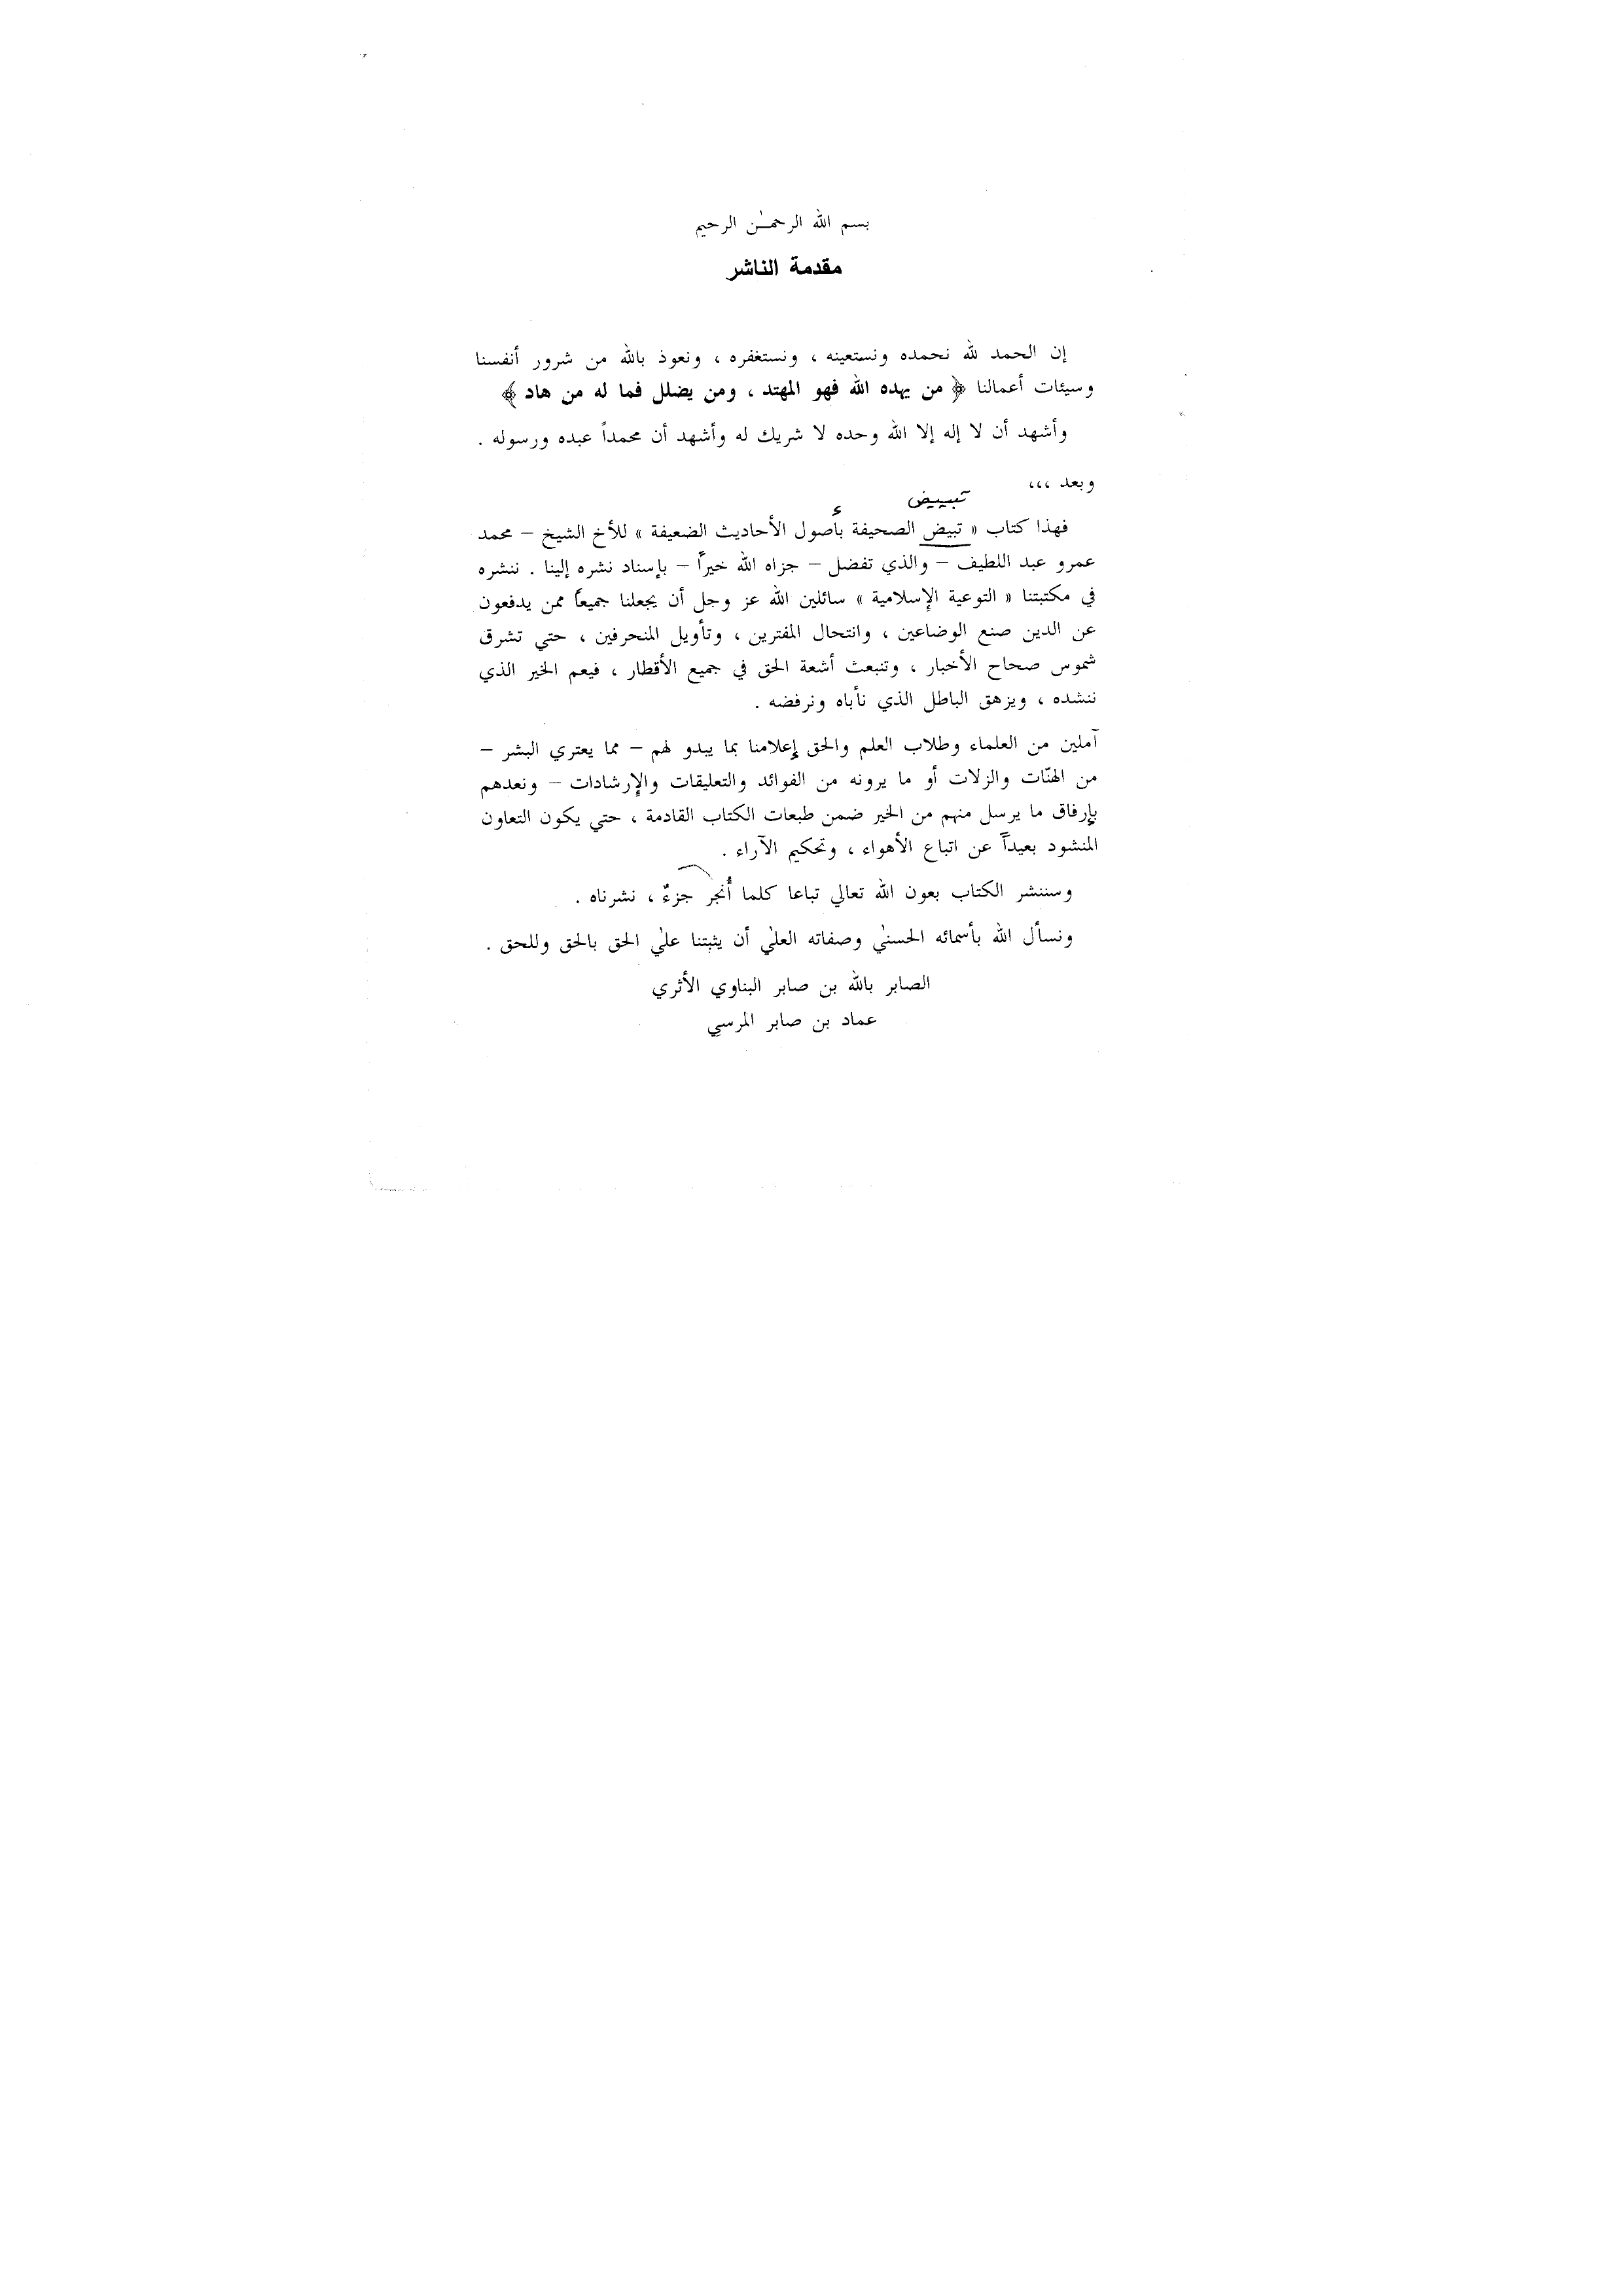 بسم الله الرحمـٰن الرحيم
مقدمة الناشر
إن الحمد لله نحمده ونستعينه ، ونستغفره ، ونعوذ بالله من شرور أنفسنا
وسيئات أعمالنا ﴿ من يهده الله فهو المهتد ، ومن يضلل فما له من هاد ﴾
وأشهد أن لا إله إلا الله وحده لا شريك له وأشهد أن محمداً عبده ورسوله .
وبعد ،،،
تبييض
فهذا كتاب « تبيض الصحيفة بأصول الأحاديث الضعيفة » للأخ الشيخ – محمد
عمرو عبد اللطيف – والذي تفضل – جزاه الله خيراً – بإسناد نشره إلينا . ننشره
في مكتبتنا « التوعية الإسلامية » سائلين الله عز وجل أن يجعلنا جميعاً ممن يدفعون
عن الدين صنع الوضاعين ، وانتحال المفترين ، وتأويل المنحرفين ، حتي تشرق
شموس صحاح الأخبار ، وتنبعث أشعة الحق في جميع الأقطار ، فيعم الخير الذي
ننشده ، ويزهق الباطل الذي نأباه ونرفضه .
آملين من العلماء وطلاب العلم والحق إعلامنا بما يبدو لهم – مما يعتري البشر –
من الهنّات والزلات أو ما يرونه من الفوائد والتعليقات والإرشادات – ونعدهم
بإرفاق ما يرسل منهم من الخير ضمن طبعات الكتاب القادمة ، حتي يكون التعاون
المنشود بعيداً عن اتباع الأهواء ، وتحكيم الآراء .
وسننشر الكتاب بعون الله تعالي تباعا كلما أُنجر جزءٌ ، نشرناه .
ونسأل الله بأسمائه الحسنىٰ وصفاته العلىٰ أن يثبتنا علىٰ الحق بالحق وللحق .
الصابر بالله بن صابر البناوي الأثري
عماد بن صابر المرسي